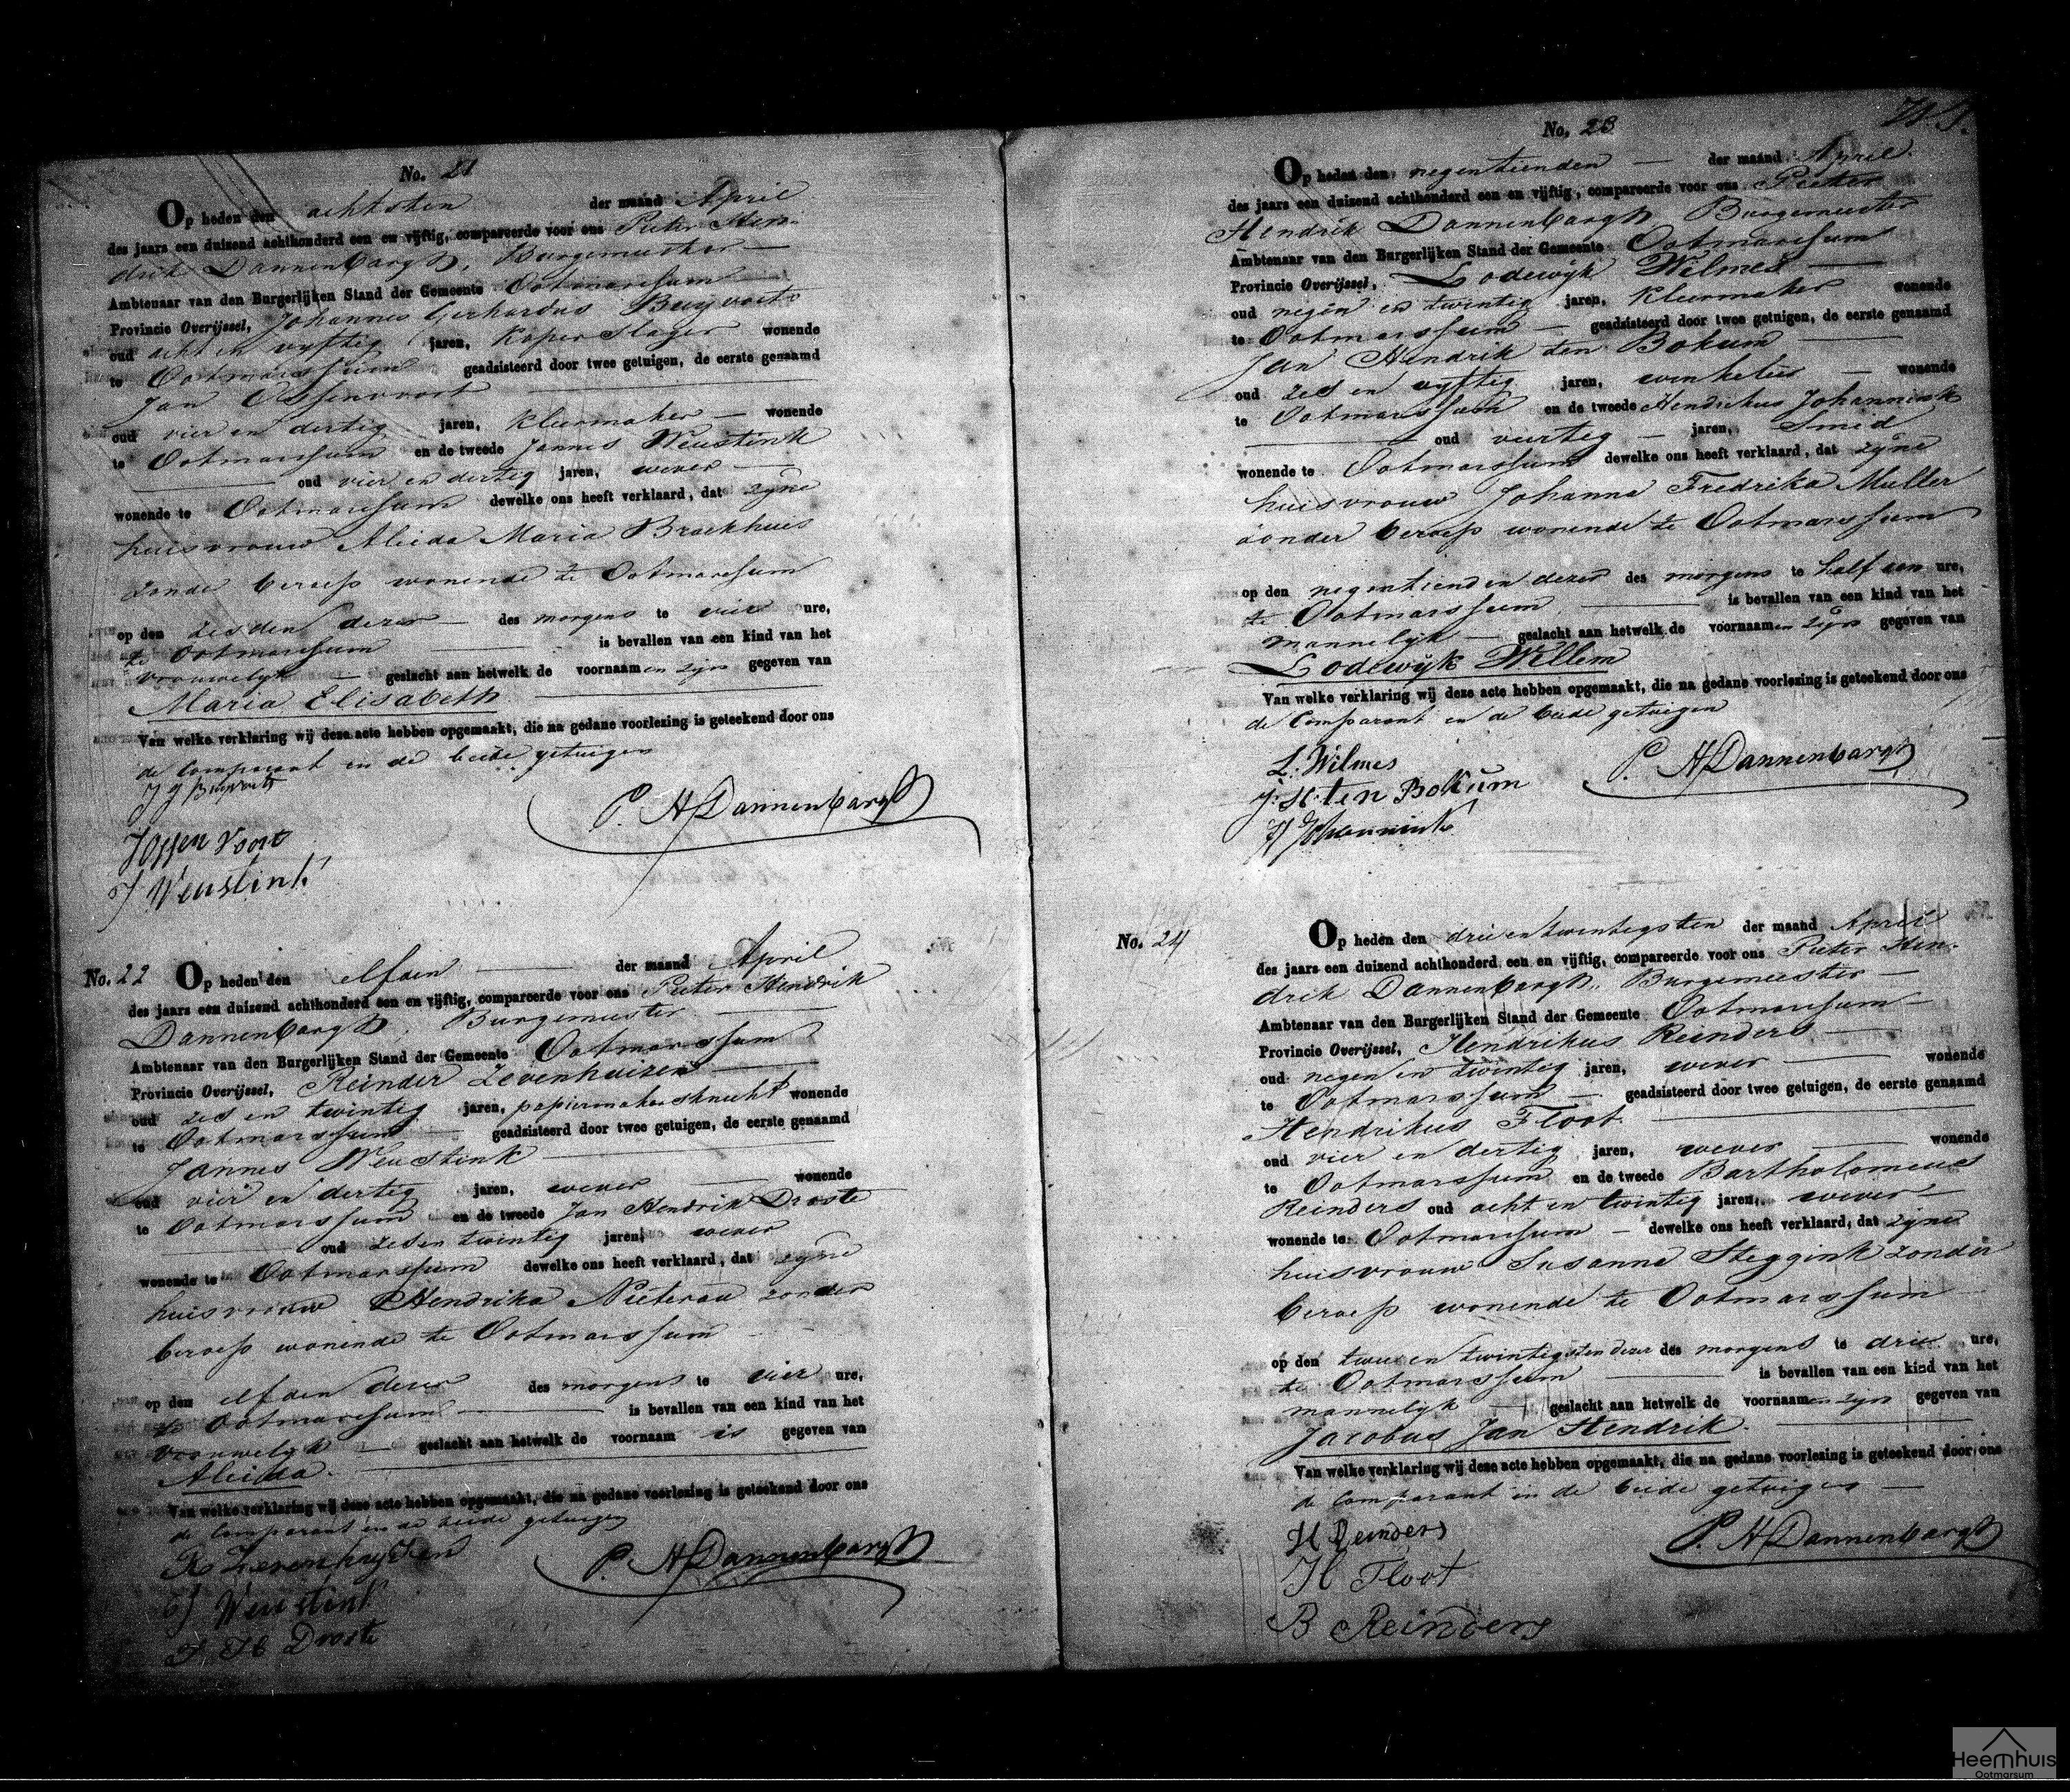 No. 21
Op heden den achtsten der maand April
des jaars een duizend achthonderd een en vijftig, compareerde voor ons Pieter Hen-
drik Dannenbargh, Burgemeester
Ambtenaar van den Burgerlijken Stand der Gemeente Ootmarssum
Provincie Overijssel, Johannes Gerhardus Buijvoets
oud acht en vyftig jaren, Koperslager wonende
te Ootmarssum geadsisteerd door twee getuigen, de eerste genaamd
Jan Ossenvoort
oud vier en dertig jaren, kleermaker wonende
te Ootmarssum en de tweede Jannes Weustink
oud vier en dertig jaren, wever
wonende te Ootmarssum dewelke ons heeft verklaard, dat zyne
huisvrouw Aleida Maria Braakhuis
zonder beroep wonende te Ootmarssum
op den zesden dezer des morgens te vier ure,
te Ootmarssum is bevallen van een kind van het
vrouwelyk geslacht aan hetwelk de voornaamen zyn gegeven van
Maria Elisabeth
Van welke verklaring wij deze acte hebben opgemaakt, die na gedane voorlezing is geteekend door ons
de Comparant en de beide getuigen
J G Buyvoets
P. H Dannenbargh
JOssenvoort
J Weustink
No. 22 Op heden den elfden der maand April
des jaars een duizend achthonderd een en vijftig, compareerde voor ons Pieter Hendrik
Dannenbargh, Burgemeester
Ambtenaar van den Burgerlijken Stand der Gemeente Ootmarssum
Provincie Overijssel, Reinder Zevenhuizen
oud zes en twintig jaren, papiermakersknecht wonende
te Ootmarssum geadsisteerd door twee getuigen, de eerste genaamd
Jannes Weustink
oud vier en dertig jaren, wever wonende
te Ootmarssum en de tweede Jan Hendrik Droste
oud zes en twintig jaren, wever
wonende te Ootmarssum dewelke ons heeft verklaard, dat zyne
huisvrouw Hendrika Nieterau zonder
beroep wonende te Ootmarssum
op den elfden dezer des morgens te vier ure,
te Ootmarssum is bevallen van een kind van het
vrouwelyk geslacht aan hetwelk de voornaam is gegeven van
Aleida
Van welke verklaring wij deze acte hebben opgemaakt, die na gedane voorlezing is geteekend door ons
de Comparant en de beide getuigen
R Zevenhuyzen
P. H Dannenbargh
J Weustink
J H Droste
No. 23
Op heden den negentienden der maand April
des jaars een duizend achthonderd een en vijftig, compareerde voor ons Pieter
Hendrik Dannenbargh Burgemeester
Ambtenaar van den Burgerlijken Stand der Gemeente Ootmarssum
Provincie Overijssel, Lodewyk Wilmes
oud negen en twintig jaren, kleermaker wonende
te Ootmarssum geadsisteerd door twee getuigen, de eerste genaamd
Jan Hendrik ten Bokum
oud zes en vyftig jaren, winkelier wonende
te Ootmarssum en de tweede Hendrikus Johannink
oud veertig jaren, Smid
wonende te Ootmarssum dewelke ons heeft verklaard, dat zyne
huisvrouw Johanna Fredrika Muller
zonder beroep wonende te Ootmarssum
op den negentienden dezer des morgens te half een ure,
te Ootmarssum is bevallen van een kind van het
mannelyk geslacht aan hetwelk de voornaamen zyn gegeven van
Lodewyk Willem
Van welke verklaring wij deze acte hebben opgemaakt, die na gedane voorlezing is geteekend door ons
de Comparant en de beide getuigen
L. Wilmes
P. H Dannenbargh
J: H: ten Bokum
H Johannink
No. 24
Op heden den drie en twintigsten der maand April
des jaars een duizend achthonderd een en vijftig, compareerde voor ons Pieter Hen-
drik Dannenbargh, Burgemeester
Ambtenaar van den Burgerlijken Stand der Gemeente Ootmarssum
Provincie Overijssel, Hendrikus Reinders
oud negen en twintig jaren, wever wonende
te Ootmarssum geadsisteerd door twee getuigen, de eerste genaamd
Hendrikus Floot
oud vier en dertig jaren, wever wonende
te Ootmarssum en de tweede Bartholomeus
Reinders oud acht en twintig jaren, wever
wonende te Ootmarssum dewelke ons heeft verklaard, dat zyne
huisvrouw Susanna Steggink zonder
beroep wonende te Ootmarssum
op den twee en twintigsten dezer des morgens te drie ure,
te Ootmarssum is bevallen van een kind van het
mannelyk geslacht aan hetwelk de voornaamen zyn gegeven van
Jacobus Jan Hendrik
Van welke verklaring wij deze acte hebben opgemaakt, die na gedane voorlezing is geteekend door ons
de Comparant en de beide getuigen
H Reinders
P. H Dannenbargh
H Floot
B Reinders
Heemhuis
Ootmarsum